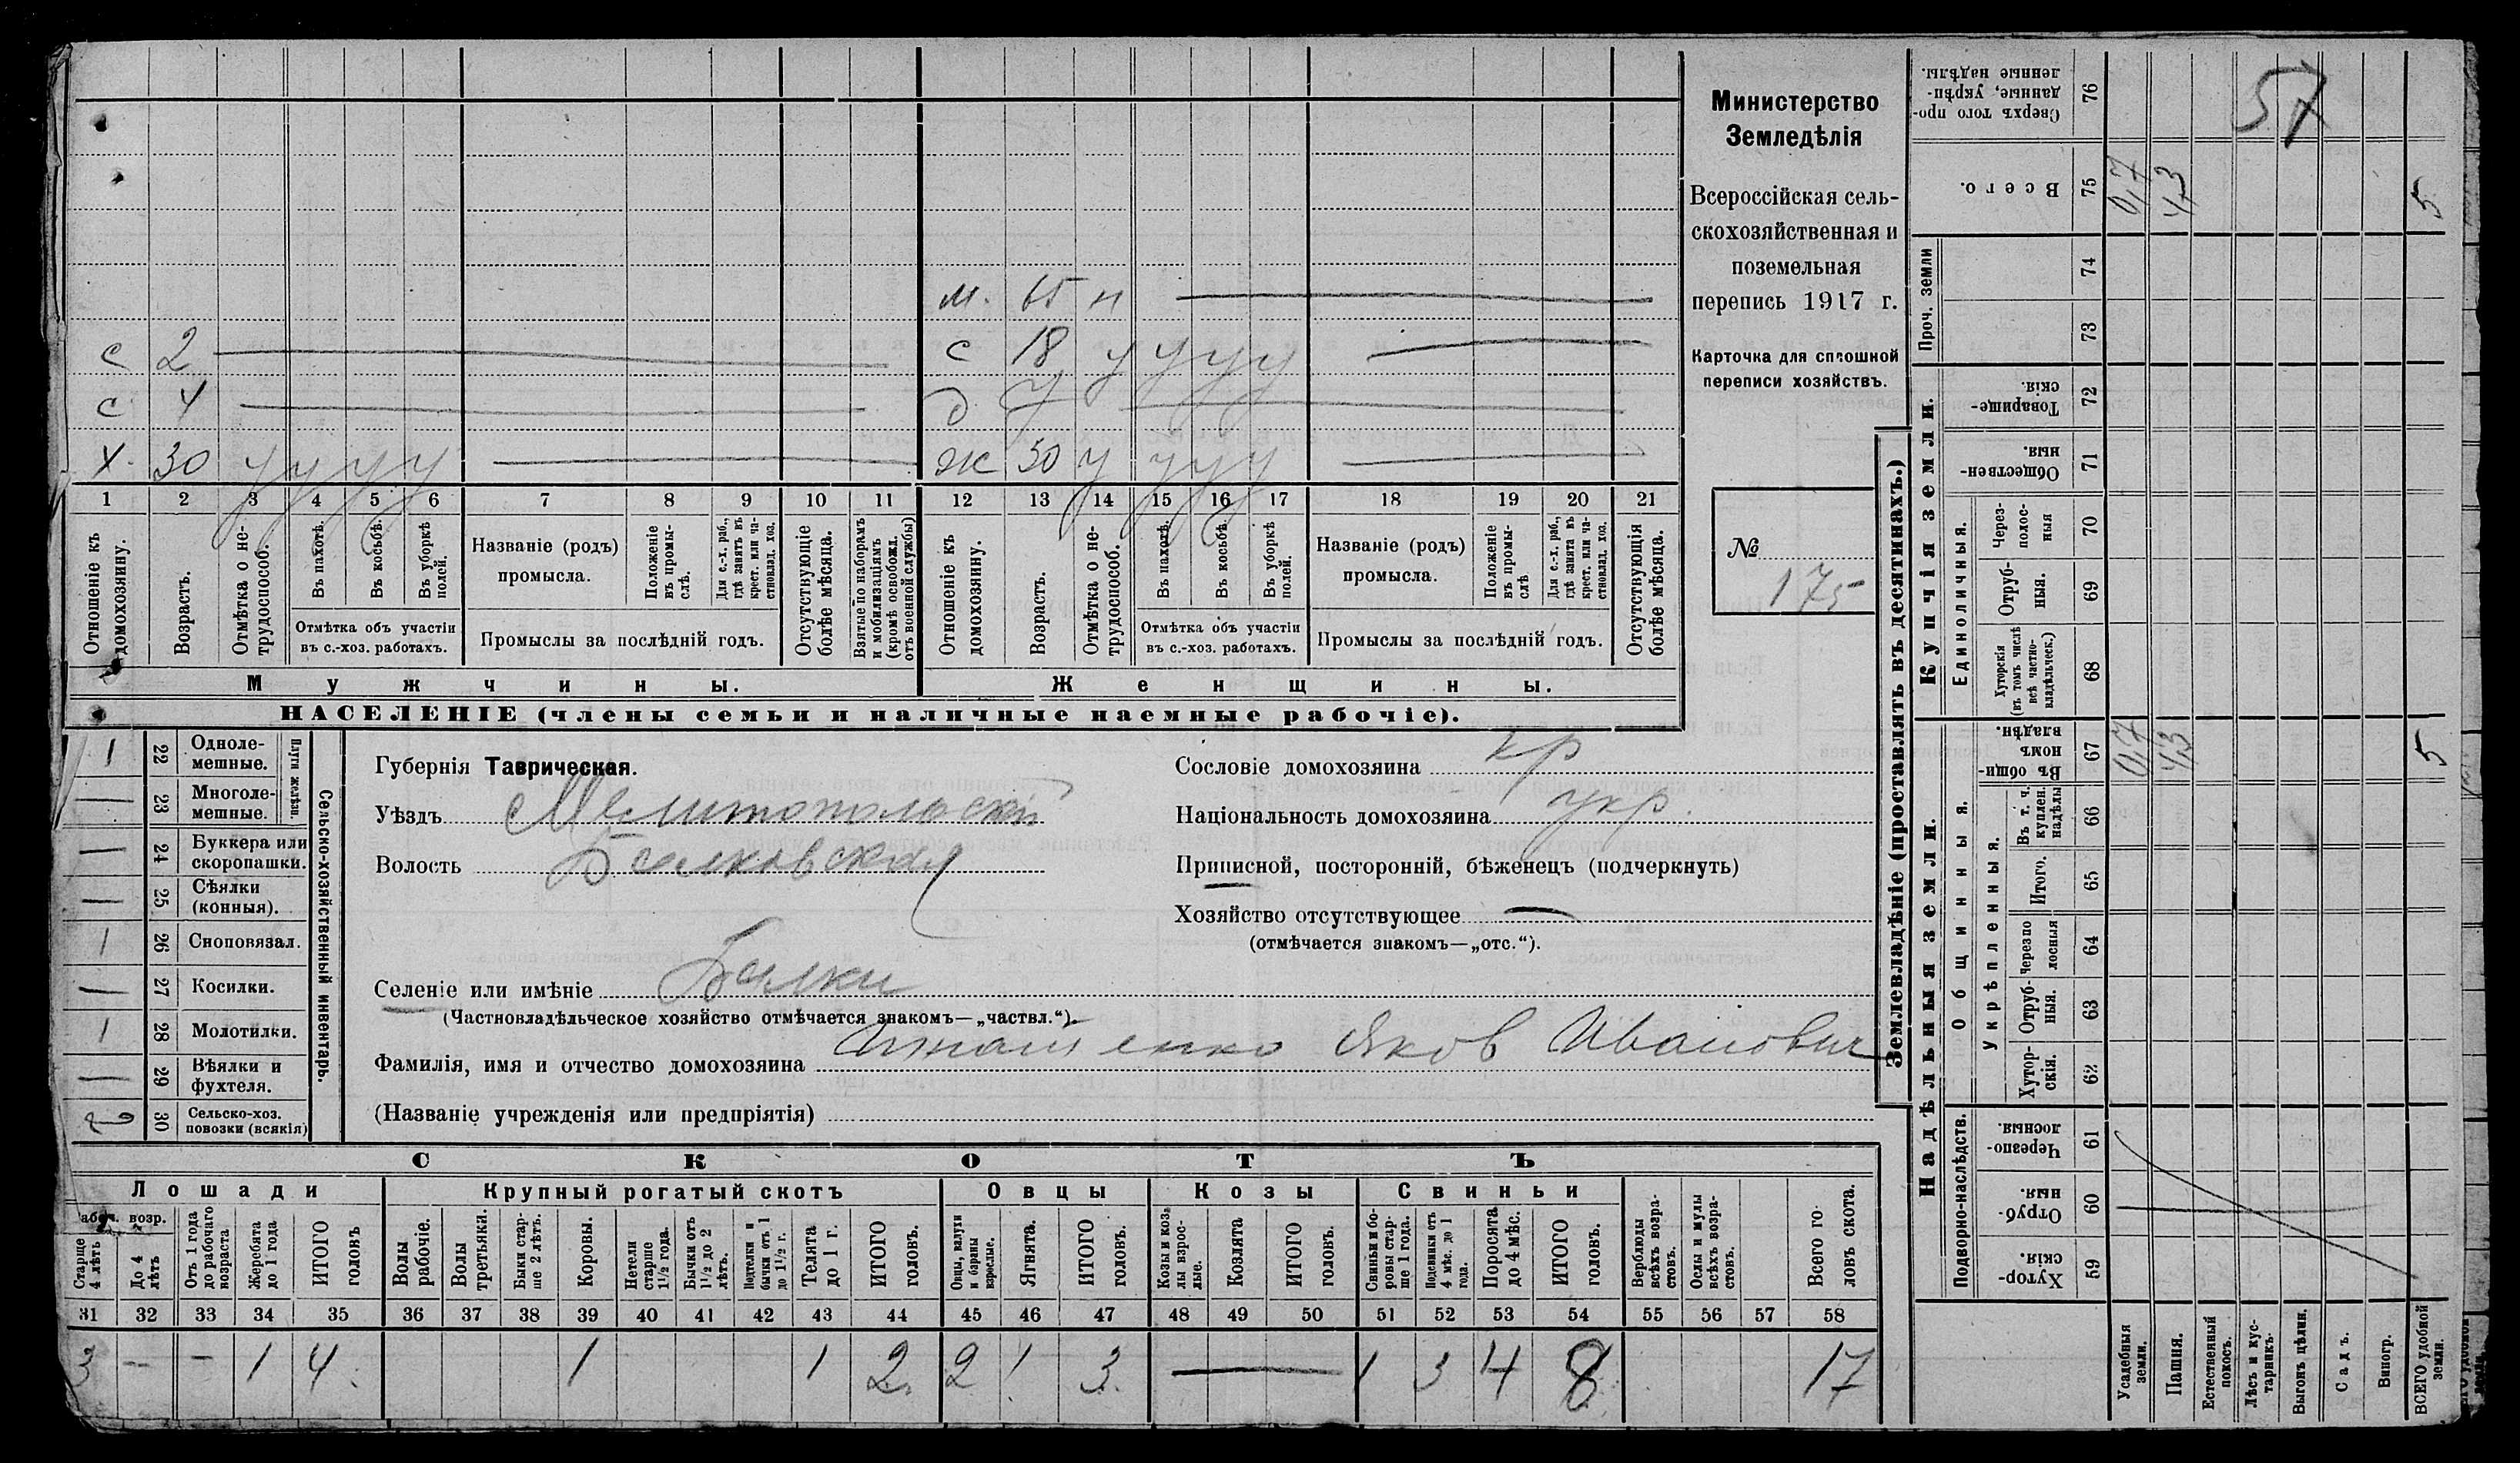 м. 65 н
с 2
с 18 у у у у
с 4
д.
х. 30 у у у у
ж 30 у у у у
1 2 3 4 5 6 7 8 9 10 11 12 13 14 15 16 17 18 19 20 21
Отношеніе къ домохозяину.
Возрастъ.
Отмѣтка о не-
трудоспособ.
Въ пахотѣ.
Въ косьбѣ.
Въ уборкѣ полей.
Отмѣтка объ участіи
въ с.-хоз. работахъ.
Названіе (родъ)
промысла.
Положеніе въ промы-
слѣ.
Для с.-х. раб., гдѣ занятъ въ крест. или ча-
стновлад. хоз.
Промыслы за послѣдній годъ.
Отсутствующіе болѣе мѣсяца.
Взятые по наборамъ и мобилизаціямъ (кромѣ освобожд. отъ военной службы)
Отношеніе къ домохозяину.
Возрастъ.
Отмѣтка о не-
трудоспособ.
Въ пахотѣ.
Въ косьбѣ.
Въ уборкѣ полей.
Отмѣтка объ участіи
въ с.-хоз. работахъ.
Названіе (родъ)
промысла.
Положеніе въ промы-
слѣ
Для с.-х. раб., гдѣ занята въ крест. или ча-
стновлад. хоз.
Промыслы за послѣдній годъ.
Отсутствующія болѣе мѣсяца.
Мужчины.
Женщины.
НАСЕЛЕНІЕ (члены семьи и наличные наемные рабочіе).
Министерство
Земледѣлія
Всероссійская сель-
скохозяйственная и
поземельная
перепись 1917 г.
Карточка для сплошной
переписи хозяйствъ.
№
175
1 22 Одноле-
мешные.
Плуги желѣзн.
— 23 Многоле-
мешные.
— 24 Буккера или
скоропашки.
— 25 Сѣялки
(конныя).
1 26 Сноповязал.
— 27 Косилки.
1 28 Молотилки.
— 29 Вѣялки и
фухтеля.
30 Сельско-хоз.
повозки (всякія)
Сельско-хозяйственный инвентарь.
Губернія Таврическая.
Уѣздъ Мелитопольский
Волость Балковская
Селеніе или имѣніе Балки
(Частновладѣльческое хозяйство отмѣчается знакомъ—„частвл.“).
Фамилія, имя и отчество домохозяина Игнатенко Яков Иванович
(Названіе учрежденія или предпріятія)
Сословіе домохозяина кр
Національность домохозяина укр.
Приписной, посторонній, бѣженецъ (подчеркнуть)
Хозяйство отсутствующее —
(отмѣчается знакомъ—„отс.“).
СКОТЪ
Лошади
Крупный рогатый скотъ
Овцы
Козы
Свиньи
возр.
Старше 4 лѣтъ
До 4 лѣтъ
Отъ 1 года до рабочаго возраста
Жеребята до 1 года
ИТОГО головъ
Волы рабочіе.
Волы третьяки.
Быки стар-
ше 2 лѣтъ.
Коровы.
Нетели старше 1½ года.
Бычки отъ 1½ до 2 лѣтъ.
Подтелки и бычки отъ 1 до 1½ г.
Телята до 1 г.
ИТОГО головъ.
Овцы, валухи и бараны взрослые.
Ягнята.
ИТОГО головъ.
Козы и коз-
лы взрос-
лые.
Козлята
ИТОГО головъ.
Свиньи и бо-
ровы стар-
ше 1 года.
Подсвинки отъ 4 мѣс. до 1 года.
Поросята до 4 мѣс.
ИТОГО головъ.
Верблюды всѣхъ возра-
стовъ.
Ослы и мулы всѣхъ возра-
стовъ.
Всего го-
ловъ скота.
31 32 33 34 35 36 37 38 39 40 41 42 43 44 45 46 47 48 49 50 51 52 53 54 55 56 57 58
3 — — 1 4. 1 1 2. 2 1 3. — 1 3 4 8 17
Землевладѣніе (проставлять въ десятинахъ.)
Надѣльныя земли.
Купчія земли.
Проч. земли
Подворно-наслѣдств.
Общинныя.
Укрѣпленныя.
Единоличныя.
Сверхъ того про-
данные, укрѣп-
ленные надѣлы.
76
57
Всего.
75
0,7
4,3
5
74
73
Товарище-
скія.
72
Обществен-
ныя.
71
Через-
полос-
ныя
70
Отруб-
ныя.
69
Хуторскія (въ томъ числѣ всѣ частно-
владѣльческ.)
68
Въ общин-
номъ
владѣн.
67
0,7
4,3
5
Въ т. ч. куплен. надѣлы
66
Итого.
65
Черезпо
лосныя
64
Отруб-
ныя.
63
Хутор-
скія.
62
Черезпо-
лосныя.
61
Отруб-
ныя.
60
Хутор-
скія.
59
Усадебныя земли.
Пашня.
Естественный покосъ.
Лѣсъ и кус-
тарникъ.
Выгонъ цѣлин.
Садъ.
Виногр.
ВСЕГО удобной земли.